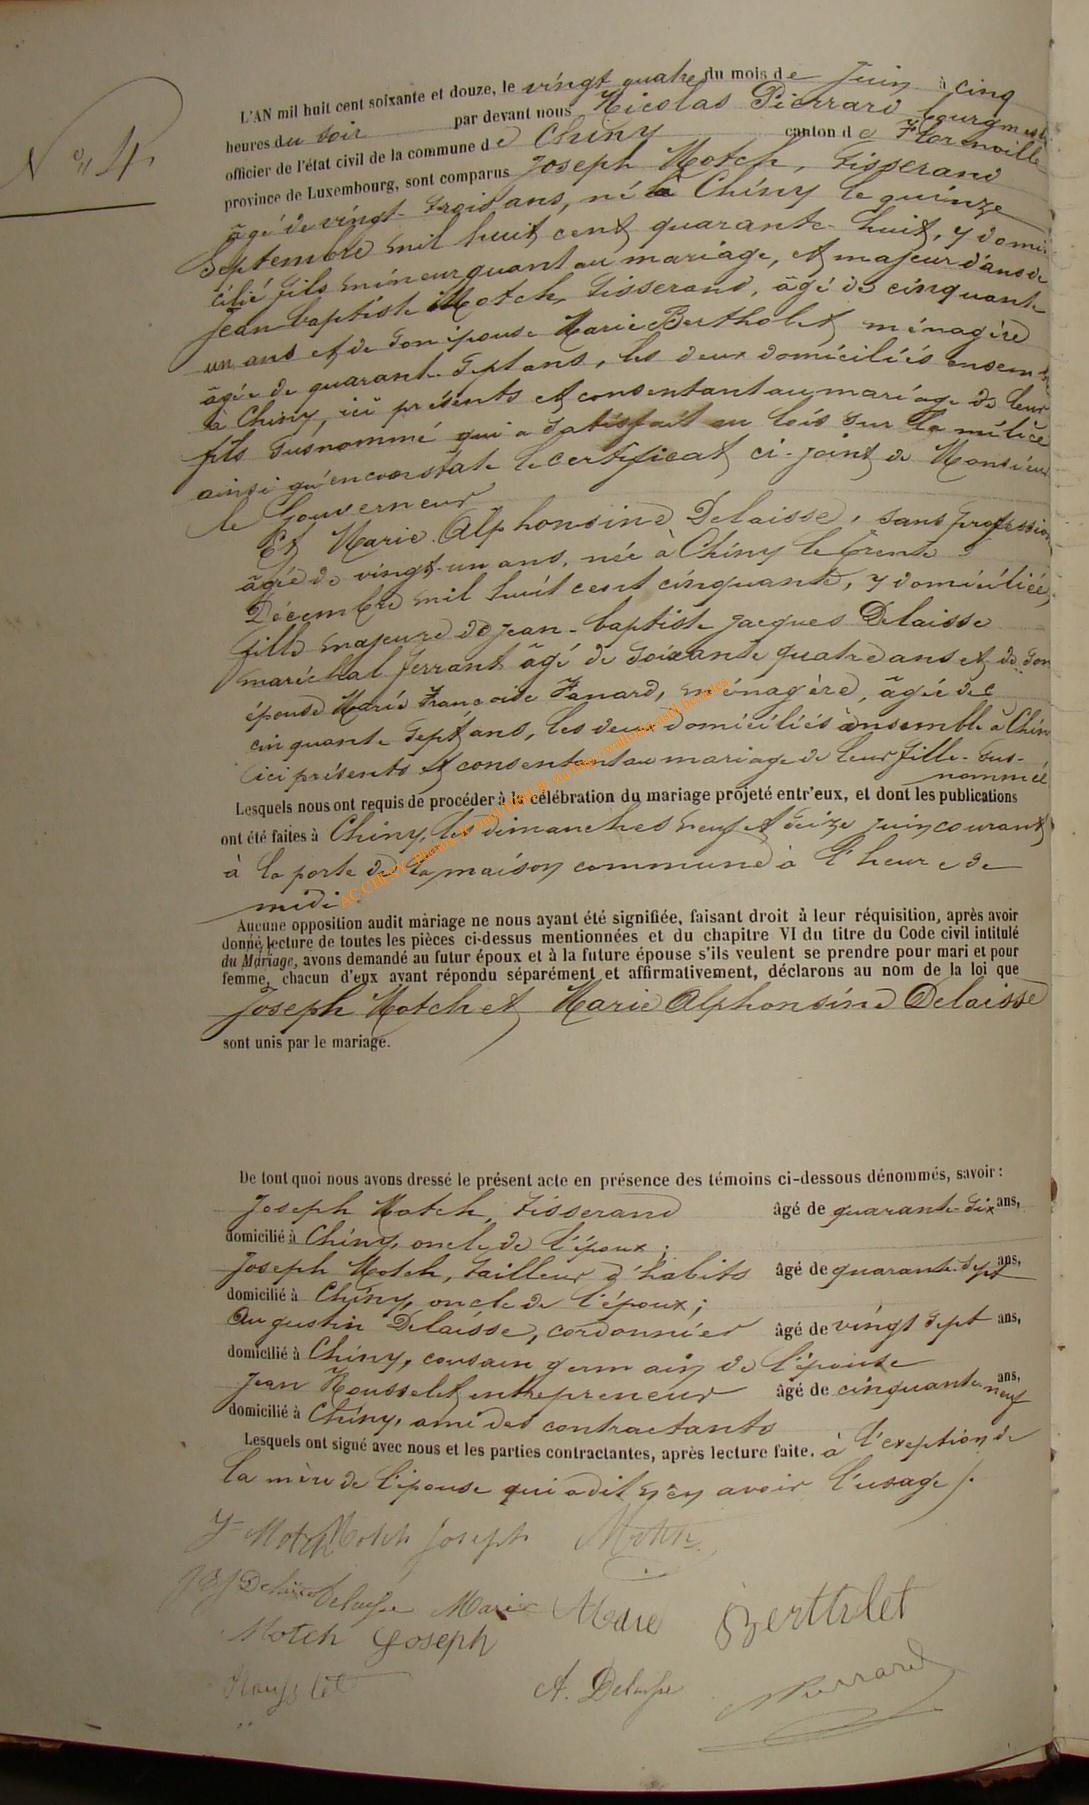 N° 4
L'AN mil huit cent soixante et douze, le vingt quatre du mois de Juin à cinq
heures du soir par devant nous Nicolas Pierrard bourgmestre
officier de l'état civil de la commune de Chiny canton de Florenville
province de Luxembourg, sont comparus Joseph Motch, tisserand
âgé de vingt-trois ans, né à Chiny le quinze
Septembre mil huit cent quarante-huit, y domi-
cilié fils mineur quant au mariage, et majeur d'ans de
Jean baptiste Motch, tisserand, âgé de cinquante
un ans et de son épouse Marie Bertholet ménagère
âgée de quarante sept ans, les deux domiciliés ensemble
à Chiny, ici présents et consentant au mariage de leur
fils susnommé qui a satisfait au lois sur la milice
ainsi qu'en constate le certificat ci-joint de Monsieur
le Gouverneur
Et Marie Alphonsine Delaisse, sans profession
âgée de vingt-un ans, née à Chiny le trente
Décembre mil huit cent cinquante, y domiciliée,
fille majeure de Jean-baptiste Jacques Delaisse
maréchal ferrant âgé de soixante quatre ans et de son
épouse Marie Françoise Fanard, ménagère, âgée de
cinquante sept ans, les deux domiciliés ensemble à Chiny
ici présents et consentant au mariage de leur fille-sus-
nommée
Lesquels nous ont requis de procéder à la célébration du mariage projeté entr'eux, et dont les publications
ont été faites à Chiny, les dimanches neuf et seize juin courant
à la porte de la maison commune à l'heure de
midi.
AC CHINY - Photos
Aucune opposition audit mariage ne nous ayant été signifiée, faisant droit à leur réquisition, après avoir
donné lecture de toutes les pièces ci-dessus mentionnées et du chapitre VI du titre du Code civil intitulé
du Mariage, avons demandé au futur époux et à la future épouse s'ils veulent se prendre pour mari et pour
femme, chacun d'eux ayant répondu séparément et affirmativement, déclarons au nom de la loi que
Joseph Motch et Marie Alphonsine Delaisse
sont unis par le mariage.
De tout quoi nous avons dressé le présent acte en présence des témoins ci-dessous dénommés, savoir :
Joseph Motch, tisserand âgé de quarante-six ans,
domicilié à Chiny, oncle de l'époux ;
Joseph Motch, tailleur d'habits âgé de quarante-sept ans,
domicilié à Chiny, oncle de l'époux ;
Augustin Delaisse, cordonnier âgé de vingt sept ans,
domicilié à Chiny, cousin germain de l'épouse
Jean Rousselet entrepreneur âgé de cinquante neuf ans,
domicilié à Chiny, ami des contractants
Lesquels ont signé avec nous et les parties contractantes, après lecture faite. à l'exeption de
la mère de l'épouse qui a dit n'en avoir l'usage /.
J Motch Motch Joseph Motch
JBJ Delaisse Delaisse Marie Marie Berttulet
Motch Joseph
Rousselet A. Delaisse NPierrard